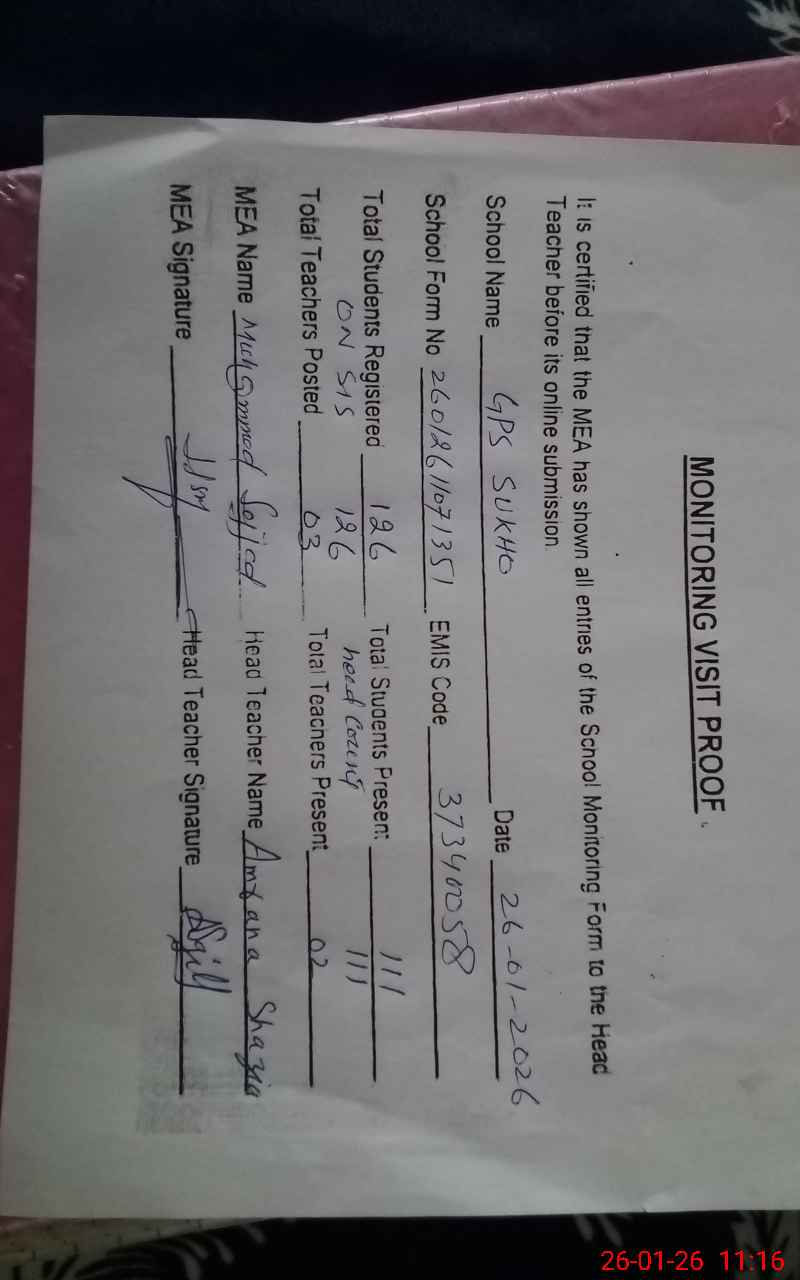 MONITORING VISIT PROOF
It is certified that the MEA has shown all entries of the School Monitoring Form to the Head
Teacher before its online submission
School Name GPS SUKHO Date 26-01-2026
School Form No 26012611071351 EMIS Code 37340058
Total Students Registered 126 Total Students Present 111
ON SIS 126 head count 111
Total Teachers Posted 03 Total Teachers Present 02
MEA Name Muhammad Sajjad Head Teacher Name Amrana Shazia
MEA Signature Head Teacher Signature
26-01-26 11:16